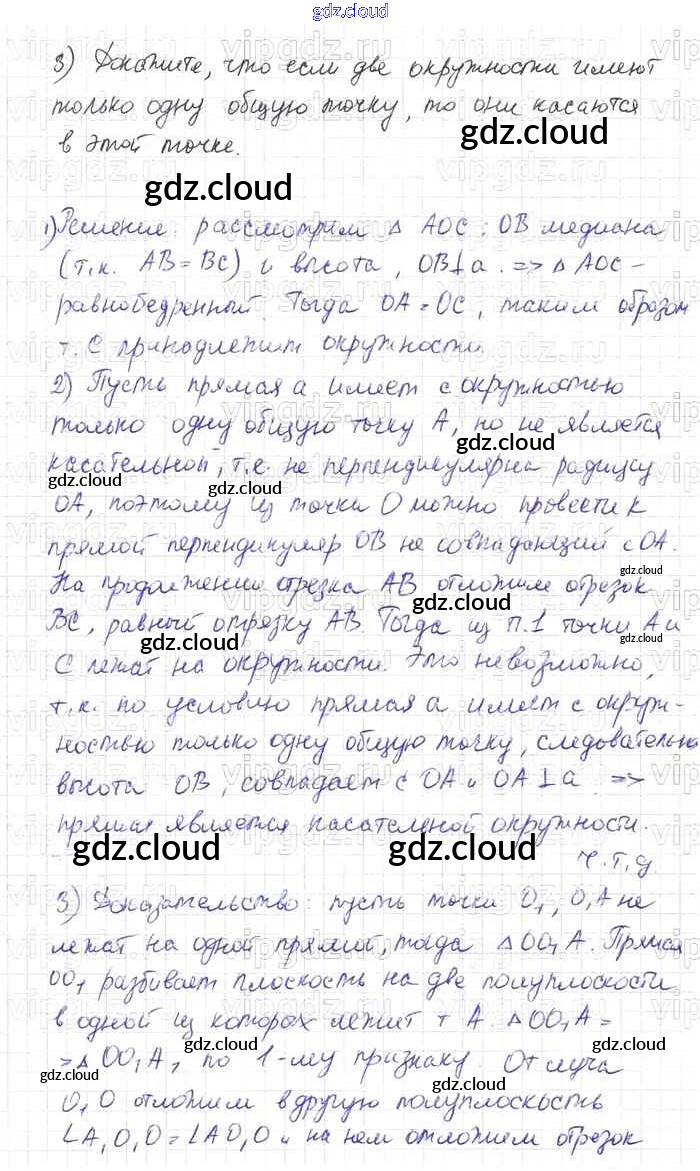 gdz.cloud
3) Докажите, что если две окружности имеют
только одну общую точку, то они касаются
в этой точке.
gdz.cloud
gdz.cloud
1) Решение: рассмотрим △ AOC: OB медиана
(т.к. AB = BC) и высота, OB⊥a. => △ AOC –
равнобедренный. Тогда OA = OC, таким образом
т. C принадлежит окружности.
2) Пусть прямая a имеет с окружностью
только одну общую точку A, но не является
gdz.cloud
касательной, т.е. не перпендикулярна радиусу
gdz.cloud gdz.cloud
OA, поэтому из точки O можно провести к
прямой перпендикуляр OB не совпадающий с OA.
gdz.cloud
На продолжении отрезка AB отложим отрезок
gdz.cloud
BC, равный отрезку AB. Тогда из п.1 точки A и
gdz.cloud gdz.cloud
C лежат на окружности. Это невозможно,
т.к. по условию прямая a имеет с окруж-
ностью только одну общую точку, следовательно
высота OB, совпадает с OA и OA⊥a =>
прямая является касательной окружности.
gdz.cloud gdz.cloud
Ч.т.д.
3) Доказательство: пусть точки O₁, O, A не
лежат на одной прямой, тогда △OO₁A. Прямая
OO₁ разбивает плоскость на две полуплоскости
в одной из которых лежит т A. △OO₁A =
= △OO₁A₁ по 1-му признаку. От луча
gdz.cloud gdz.cloud gdz.cloud
O₁O отложим в другую полуплоскость
∠A₁O₁O = ∠AO₁O и на нем отложим отрезок